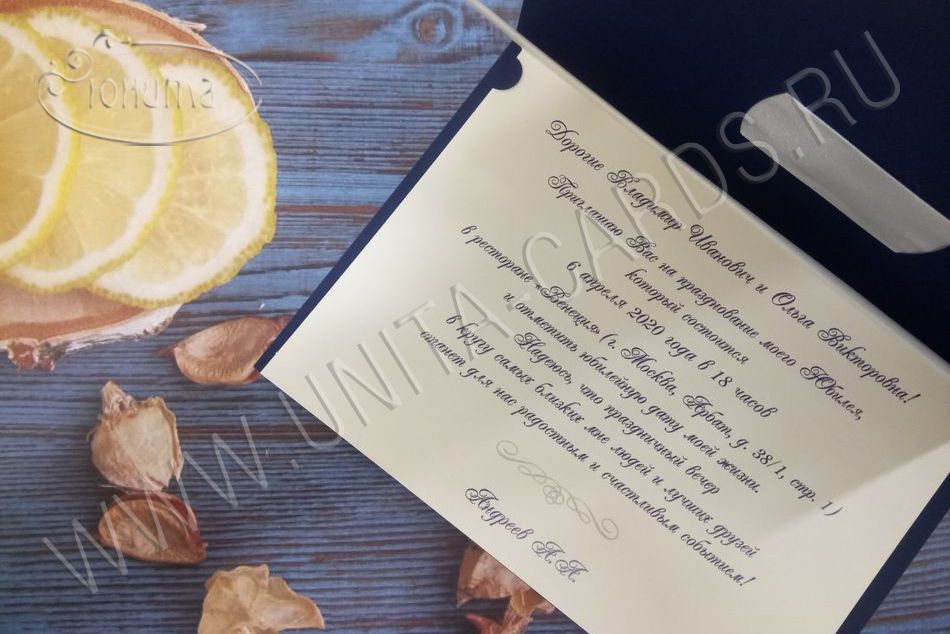 Юнита
WWW.UNITA-CARDS.RU
Дорогие Владимир Иванович и Ольга Викторовна!
Приглашаю Вас на празднование моего Юбилея,
который состоится
6 апреля 2020 года в 18 часов
в ресторане «Венеция» (г. Москва, Арбат, д. 38/1, стр. 1)
и отметить юбилейную дату моей жизни.
Надеюсь, что праздничный вечер
в кругу самых близких мне людей и лучших друзей
станет для нас радостным и счастливым событием!
Андреев А.А.